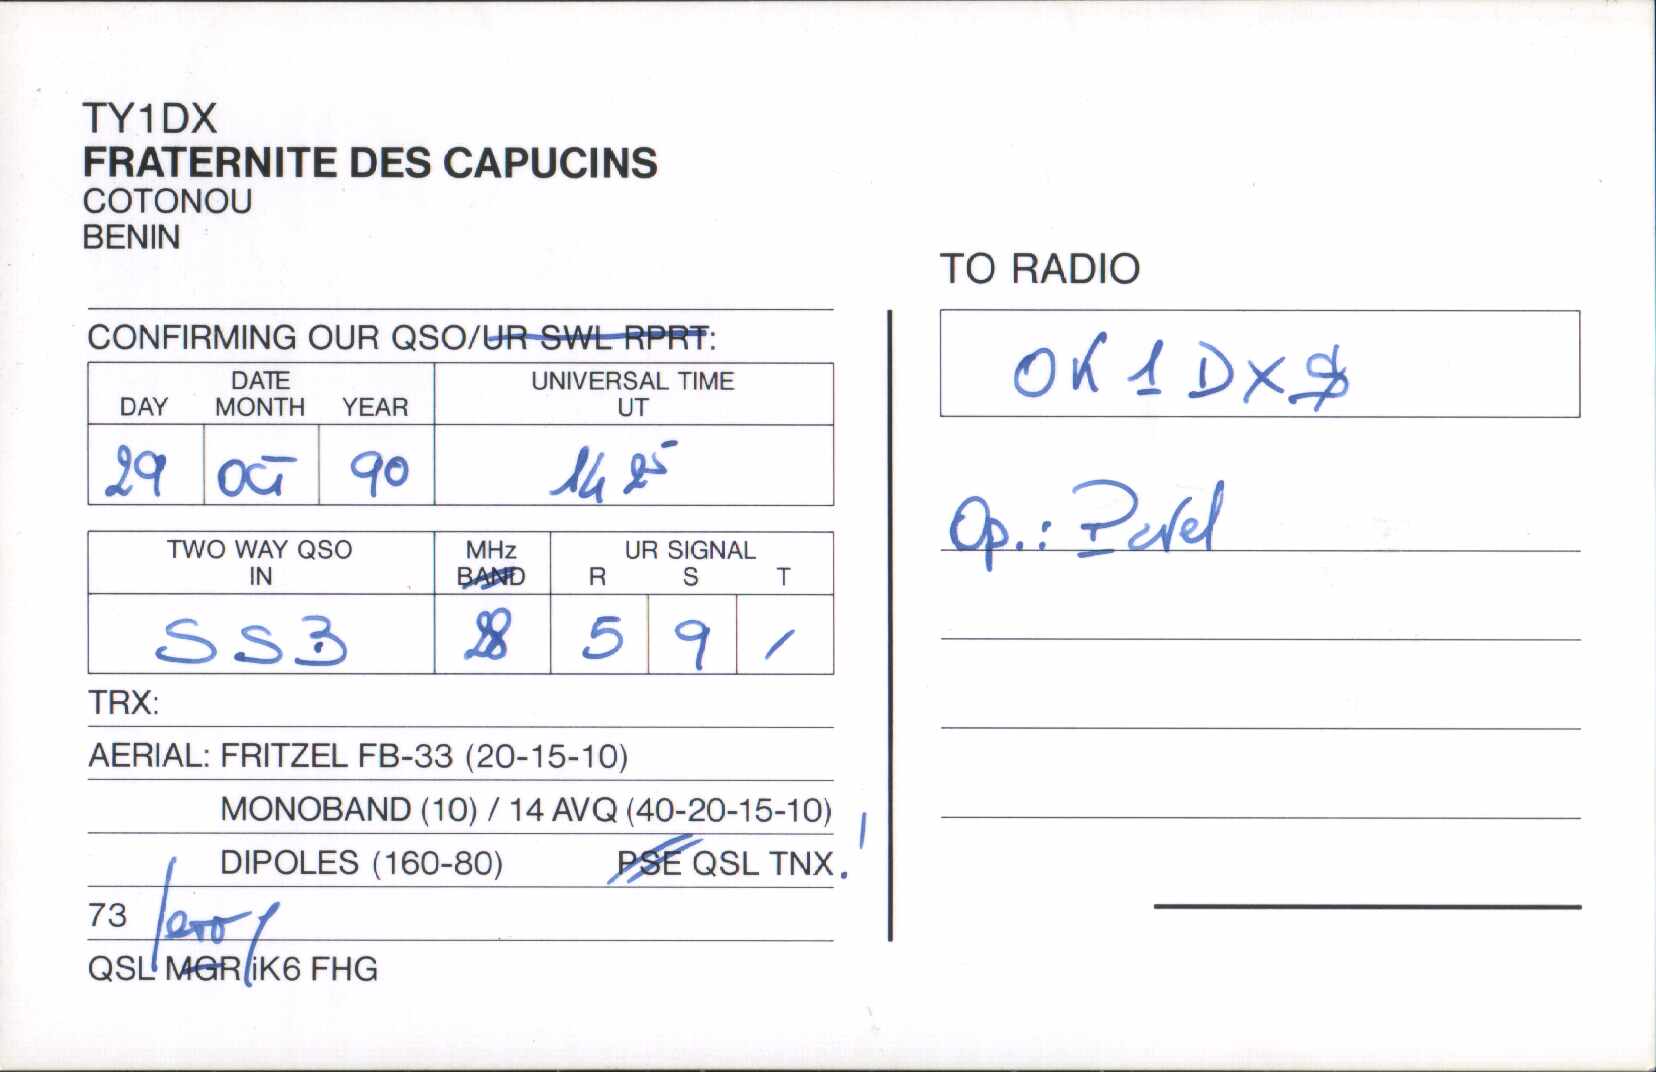 TY1DX
FRATERNITE DES CAPUCINS
COTONOU
BENIN
CONFIRMING OUR QSO/UR SWL RPRT:
DATE
DAY MONTH YEAR
UNIVERSAL TIME
UT
29 OCT 90
1425
TWO WAY QSO
IN
MHz
BAND
UR SIGNAL
R S T
SSB
28
5 9 /
TRX:
AERIAL: FRITZEL FB-33 (20-15-10)
MONOBAND (10) / 14 AVQ (40-20-15-10)
DIPOLES (160-80) PSE QSL TNX.!
73
QSL MGR iK6 FHG
TO RADIO
OK1DX
Op.: Pavel